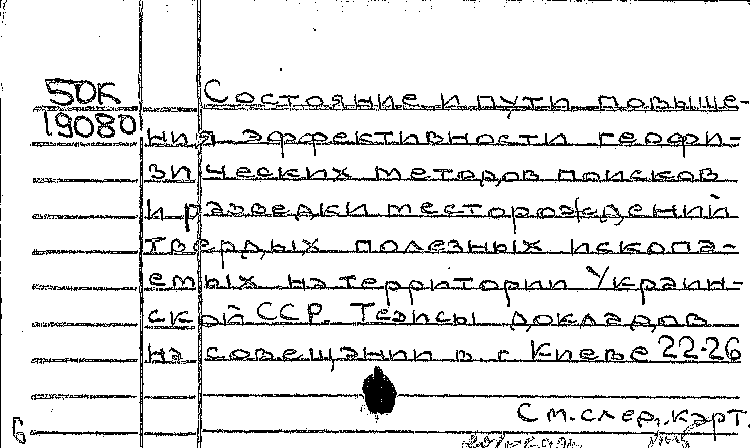 50К Состояние и пути повыше-
19080 ния эффективности геофи-
зических методов поисков
и разведки месторождений
твердых полезных ископа-
емых на территории Украин-
ской ССР. Тезисы докладов
на совещании в г Киеве 22-26
См. след. карт.
Б